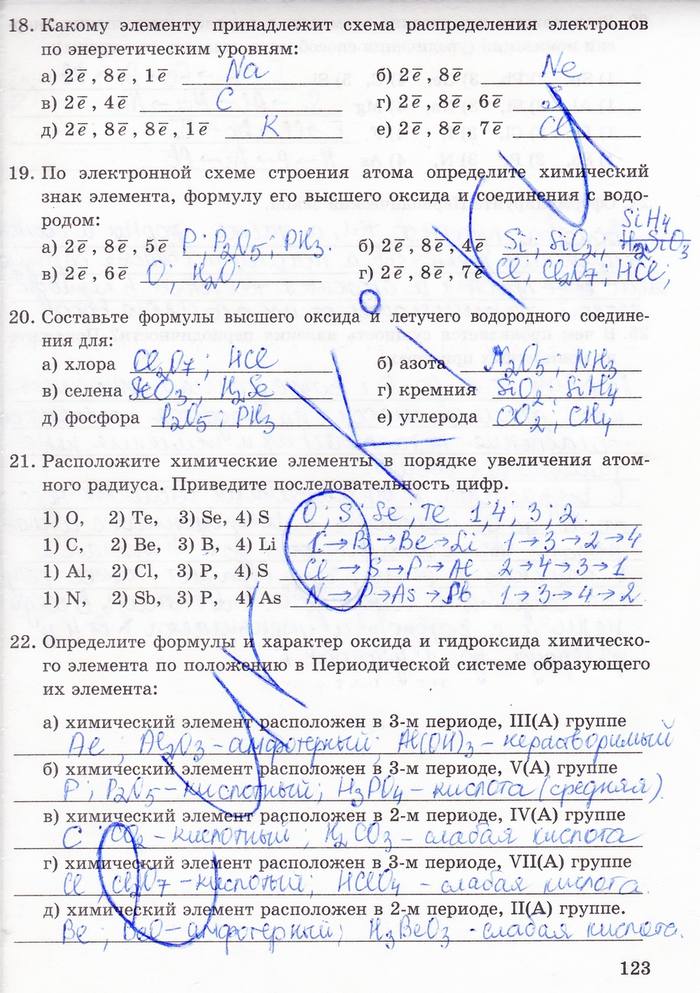 18. Какому элементу принадлежит схема распределения электронов
по энергетическим уровням:
а) 2e̅, 8e̅, 1e̅ Na б) 2e̅, 8e̅ Ne
в) 2e̅, 4e̅ C г) 2e̅, 8e̅, 6e̅ S
д) 2e̅, 8e̅, 8e̅, 1e̅ K е) 2e̅, 8e̅, 7e̅ Cl
19. По электронной схеме строения атома определите химический
знак элемента, формулу его высшего оксида и соединения с водо-
родом:
SiH4
а) 2e̅, 8e̅, 5e̅ P; P2O5; PH3. б) 2e̅, 8e̅, 4e̅ Si; SiO2; H2SiO3
в) 2e̅, 6e̅ O; H2O г) 2e̅, 8e̅, 7e̅ Cl; Cl2O7; HCl;
20. Составьте формулы высшего оксида и летучего водородного соедине-
ния для:
а) хлора Cl2O7; HCl б) азота N2O5; NH3
в) селена SeO3; H2Se г) кремния SiO2; SiH4
д) фосфора P2O5; PH3 е) углерода CO2; CH4
21. Расположите химические элементы в порядке увеличения атом-
ного радиуса. Приведите последовательность цифр.
1) O, 2) Te, 3) Se, 4) S O; S; Se; Te 1; 4; 3; 2.
1) C, 2) Be, 3) B, 4) Li C→B→Be→Li 1→3→2→4
1) Al, 2) Cl, 3) P, 4) S Cl→S→P→Al 2→4→3→1
1) N, 2) Sb, 3) P, 4) As N→P→As→Sb 1→3→4→2
22. Определите формулы и характер оксида и гидроксида химическо-
го элемента по положению в Периодической системе образующего
их элемента:
а) химический элемент расположен в 3-м периоде, III(А) группе
Al; Al2O3 - амфотерный; Al(OH)3 - нерастворимый
б) химический элемент расположен в 3-м периоде, V(А) группе
P; P2O5 - кислотный; H3PO4 - кислота (средняя).
в) химический элемент расположен в 2-м периоде, IV(А) группе
C CO2 - кислотный; H2CO3 - слабая кислота
г) химический элемент расположен в 3-м периоде, VII(А) группе
Cl Cl2O7 - кислотый; HClO4 - слабая кислота.
д) химический элемент расположен в 2-м периоде, II(А) группе.
Be; BeO - амфотерный; H3BeO3 - слабая кислота.
123